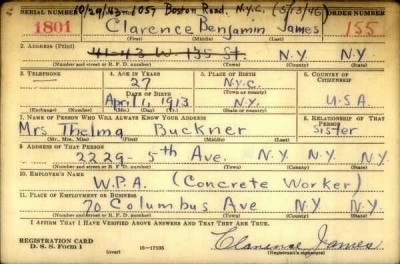 10/29/43 - 1057 Boston Road, N.Y.C. (5/13/46)
SERIAL NUMBER 1. NAME (Print) ORDER NUMBER
1801 Clarence Benjamin James 155
(First) (Middle) (Last)
2. ADDRESS (Print)
W. 135 St. N.Y. N.Y.
(Number and street or R. F. D. number) (Town) (County) (State)
3. TELEPHONE 4. AGE IN YEARS 5. PLACE OF BIRTH 6. COUNTRY OF CITIZENSHIP
27 N.Y.C.
DATE OF BIRTH
April 1, 1913 N.Y. U.S.A.
(Exchange) (Number) (Mo.) (Day) (Yr.) (State or country)
7. NAME OF PERSON WHO WILL ALWAYS KNOW YOUR ADDRESS 8. RELATIONSHIP OF THAT PERSON
Mrs Thelma Buckner Sister
(Mr., Mrs., Miss) (First) (Middle) (Last)
9. ADDRESS OF THAT PERSON
2229 - 5th Ave. N.Y. N.Y. N.Y.
(Number and street or R. F. D. number) (Town) (County) (State)
10. EMPLOYER'S NAME
W.P.A. (Concrete Worker)
11. PLACE OF EMPLOYMENT OR BUSINESS
70 Columbus Ave N.Y. N.Y.
(Number and street or R. F. D. number) (Town) (County) (State)
I AFFIRM THAT I HAVE VERIFIED ABOVE ANSWERS AND THAT THEY ARE TRUE.
REGISTRATION CARD
D. S. S. Form 1 (over) 16-17105 Clarence James
(Registrant's signature)